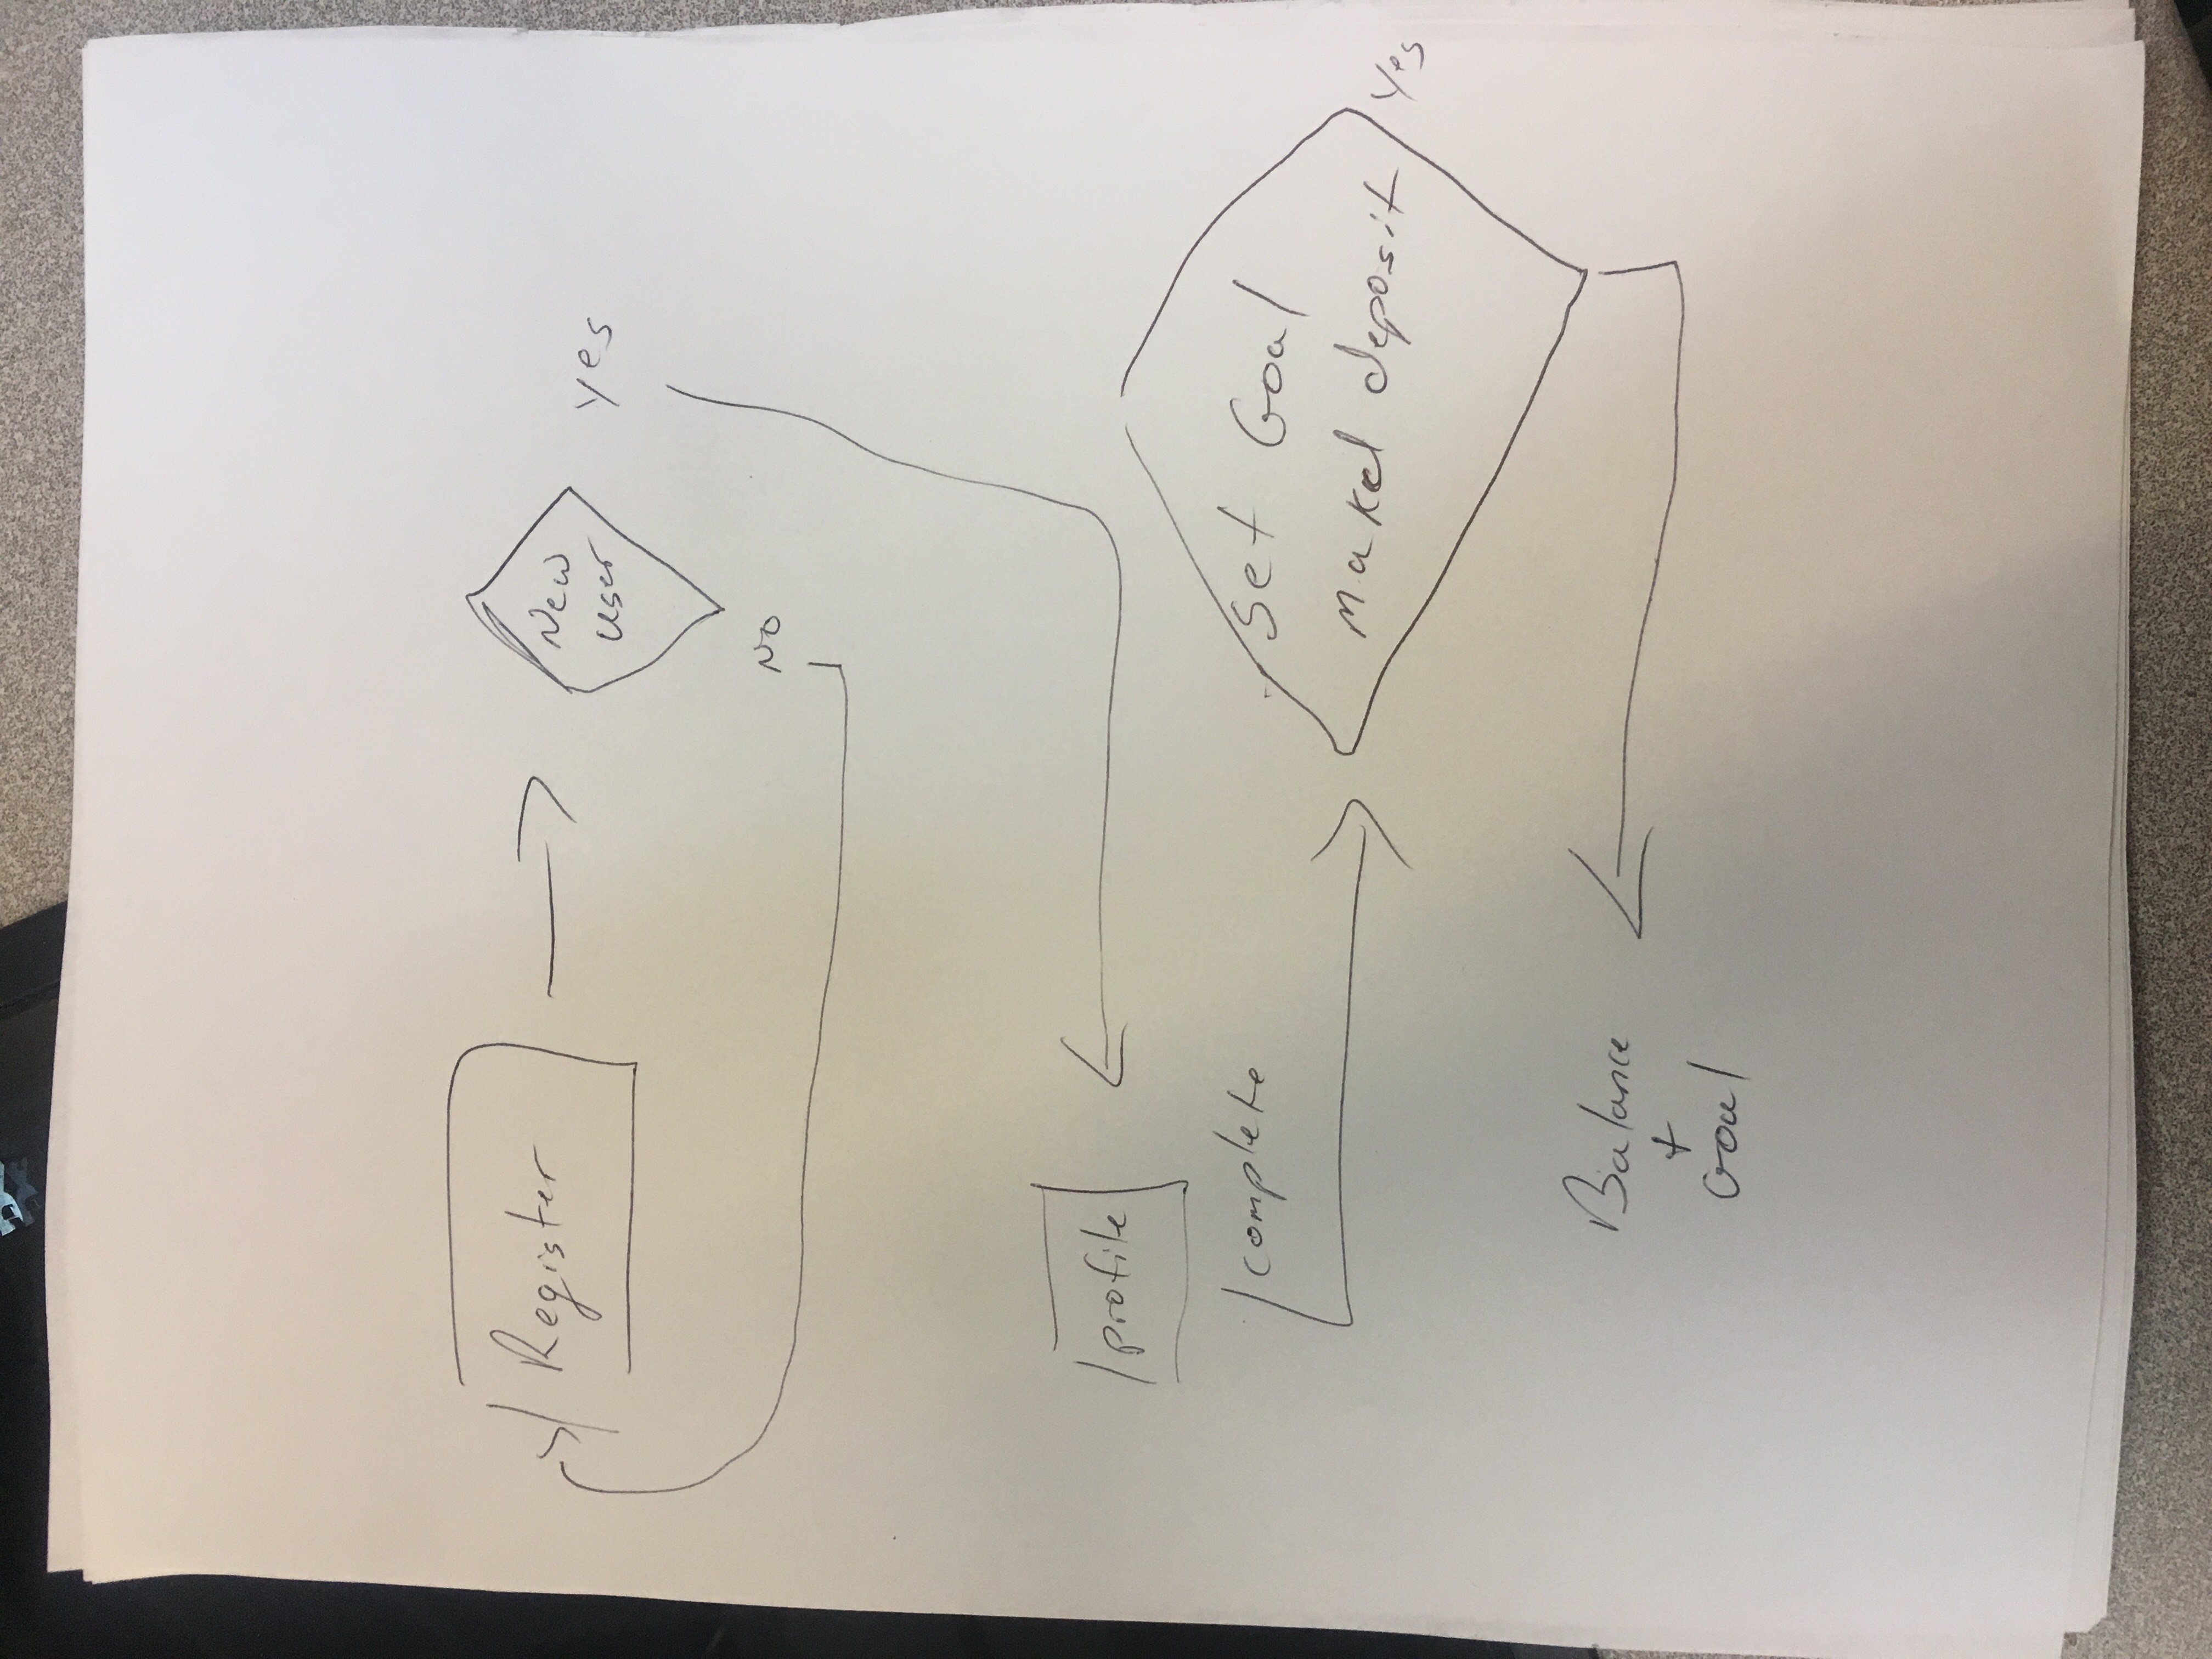 Register
New
user
yes
NO
profile
complete
set Goal
maked deposit
Yes
Balance
+
Goal